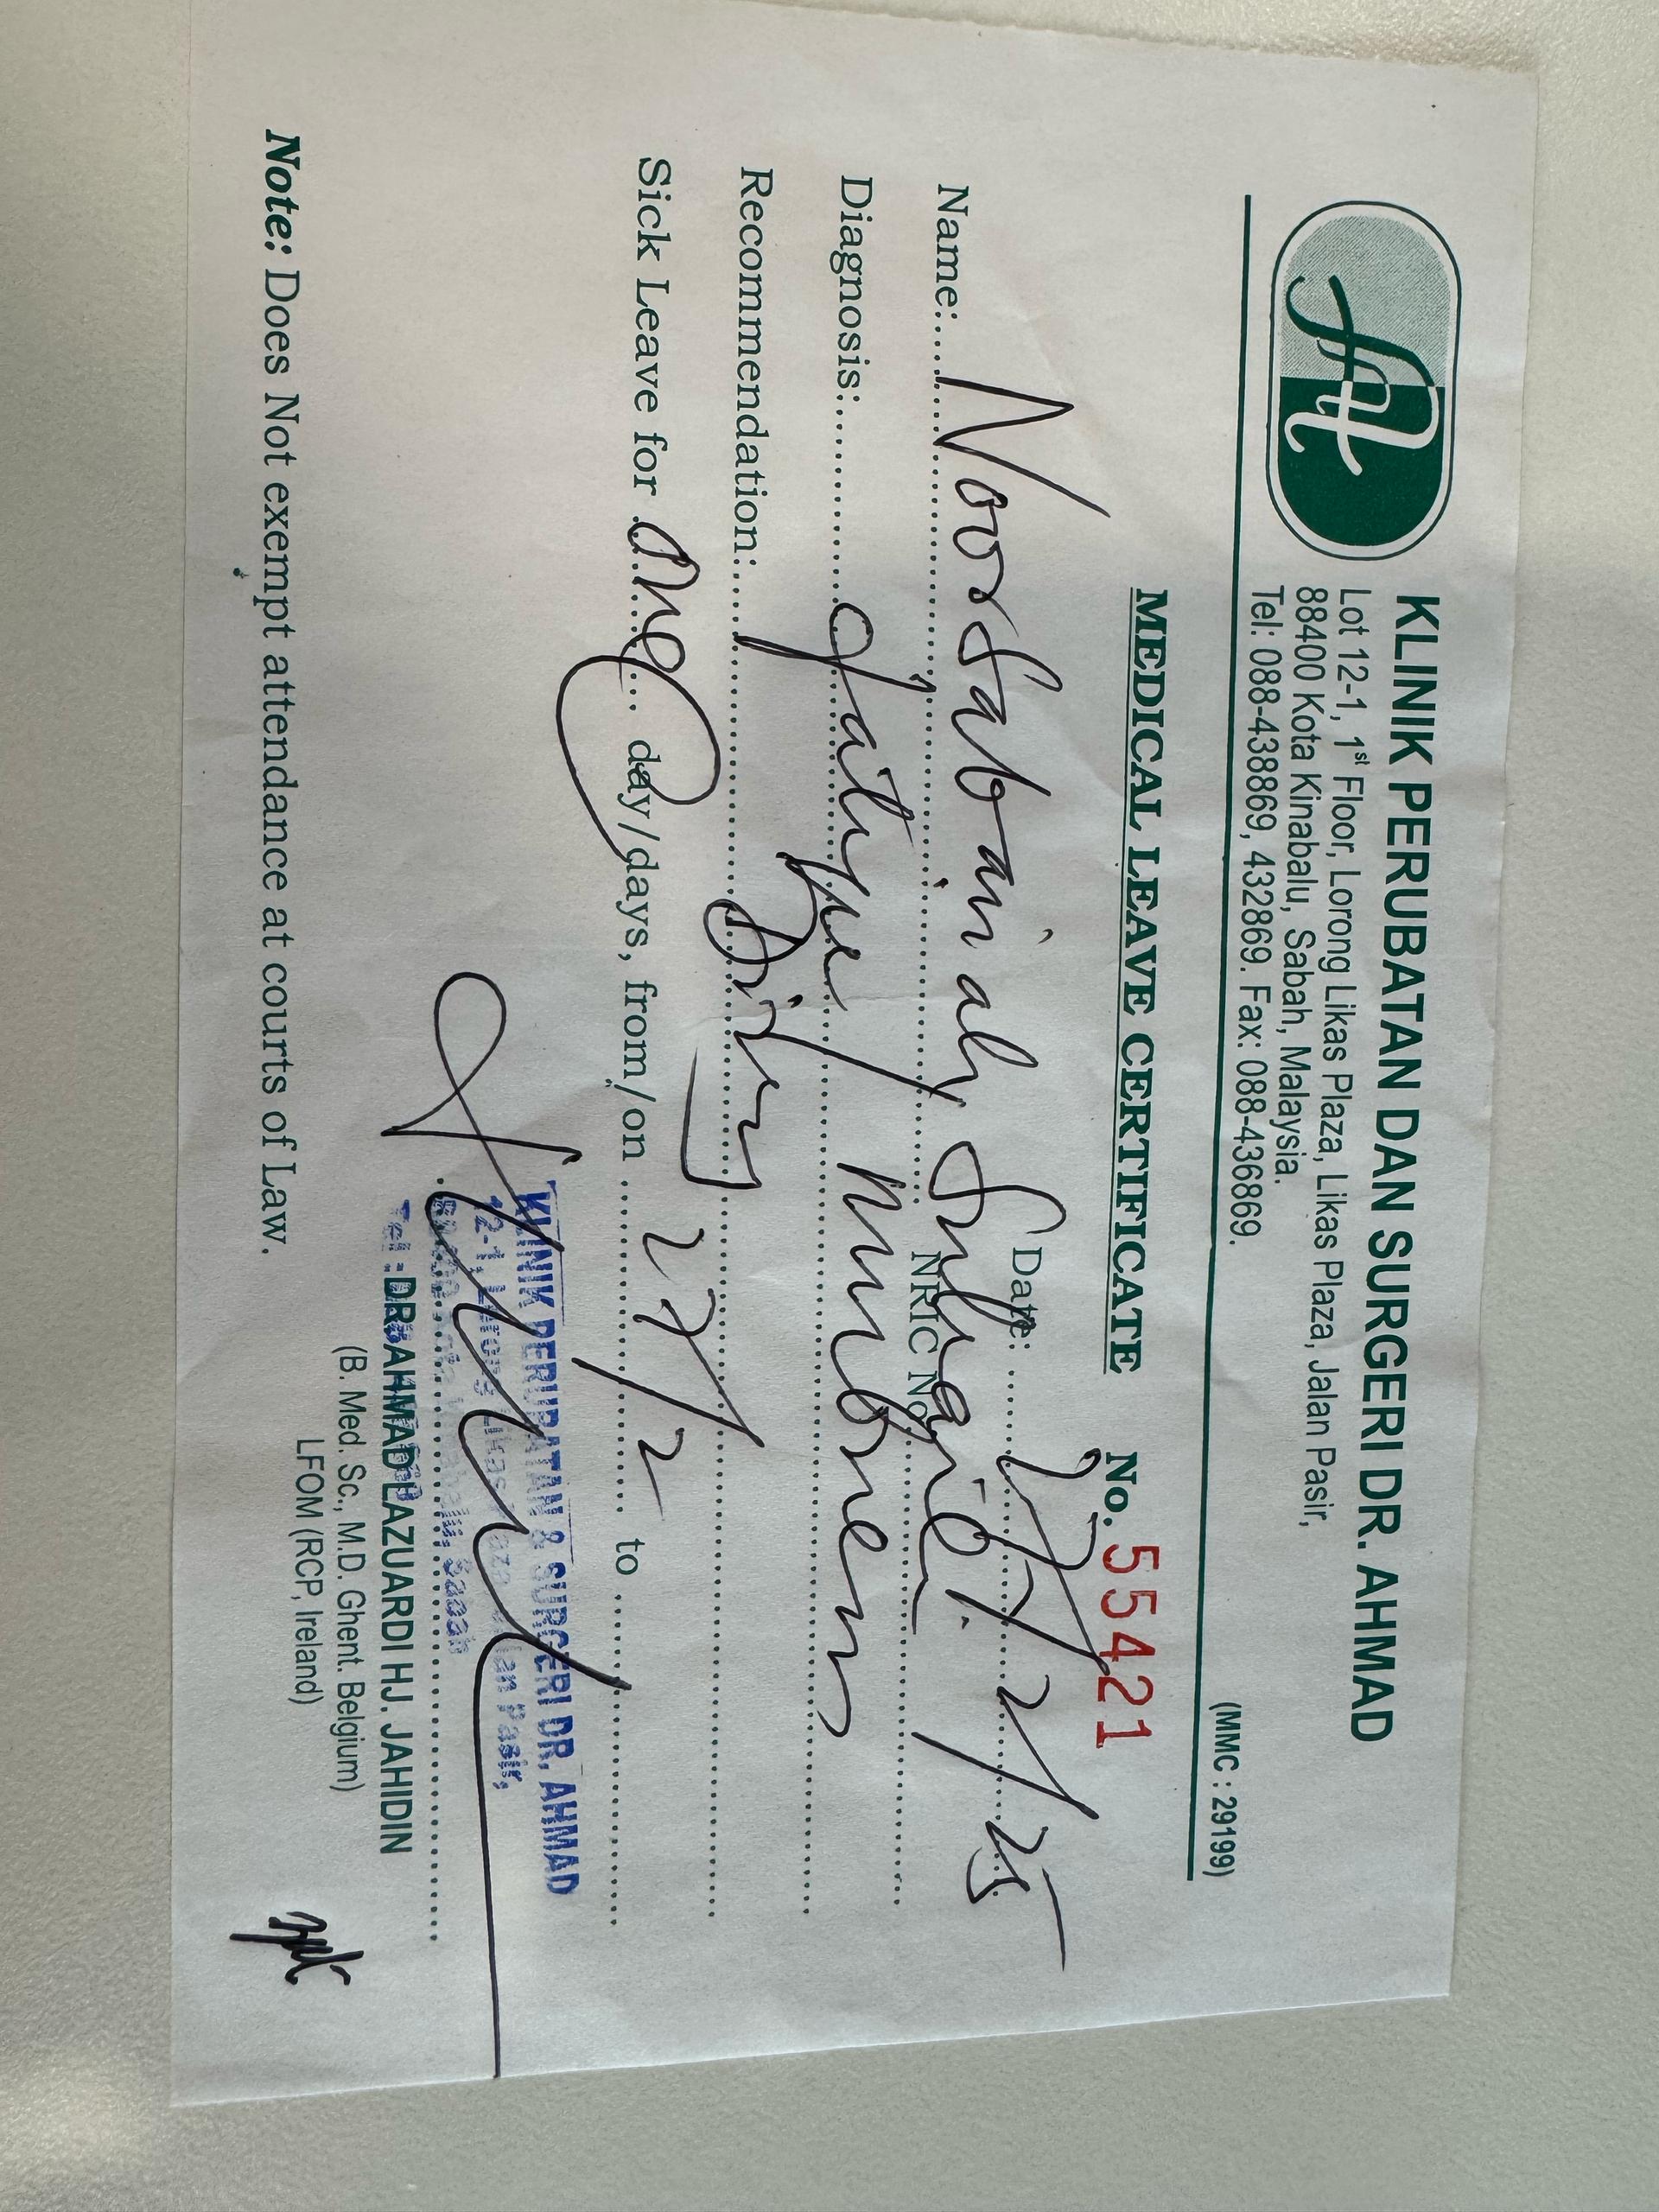 KLINIK PERUBATAN DAN SURGERI DR. AHMAD
Lot 12-1, 1st Floor, Lorong Likas Plaza, Likas Plaza, Jalan Pasir,
88400 Kota Kinabalu, Sabah, Malaysia.
Tel: 088-438869, 432869. Fax: 088-436869.
(MMC : 29199)
MEDICAL LEAVE CERTIFICATE No. 55421
Date: 27/2/25
Name: Noorsabariah Suhaili
NRIC No.
Diagnosis: fatigue /
Recommendation:
Sick Leave for one day/days, from/on 27/2 to
KLINIK PERUBATAN & SURGERI DR. AHMAD
12-1, Lorong Likas Plaza, Jalan Pasir,
88400 Kota Kinabalu, Sabah
Tel :
DR. AHMAD LAZUARDI HJ. JAHIDIN
(B. Med. Sc., M.D. Ghent. Belgium)
LFOM (RCP, Ireland)
Note: Does Not exempt attendance at courts of Law.